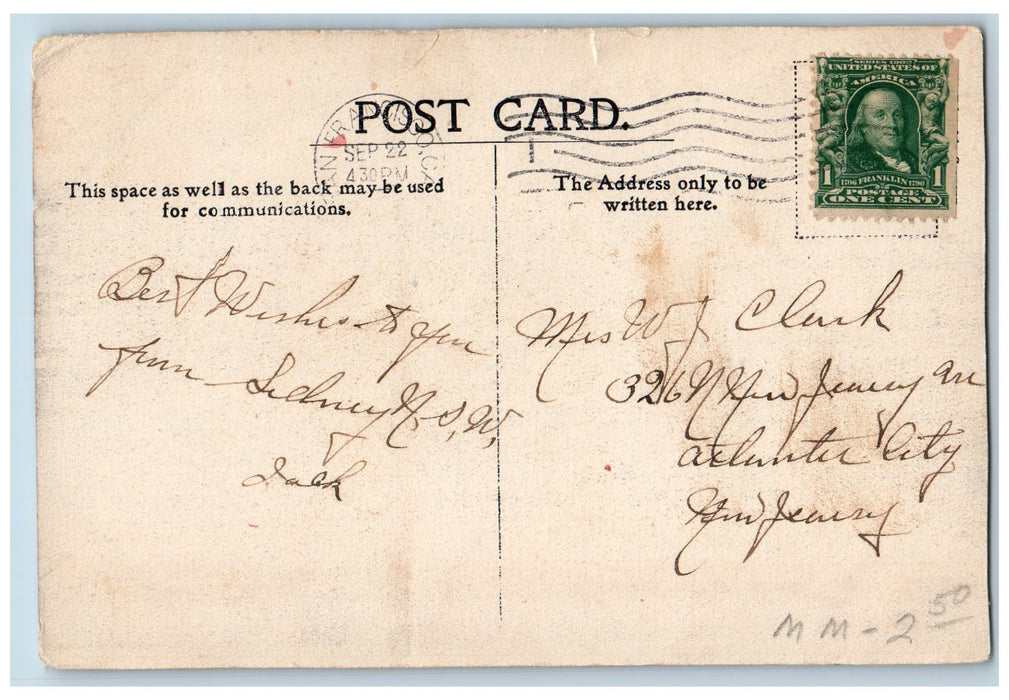 POST CARD.
SAN FRANCISCO, CA
SEP 22
4 30 PM
SERIES 1902
UNITED STATES OF
AMERICA
1 1706 FRANKLIN 1790 1
POSTAGE
ONE CENT
This space as well as the back may be used
for communications.
The Address only to be
written here.
Best Wishes to you
from Sidney N.S.W.
Jack
Mrs W J Clark
326 N New Jersey Ave
Atlantic City
New Jersey
MM-2 50